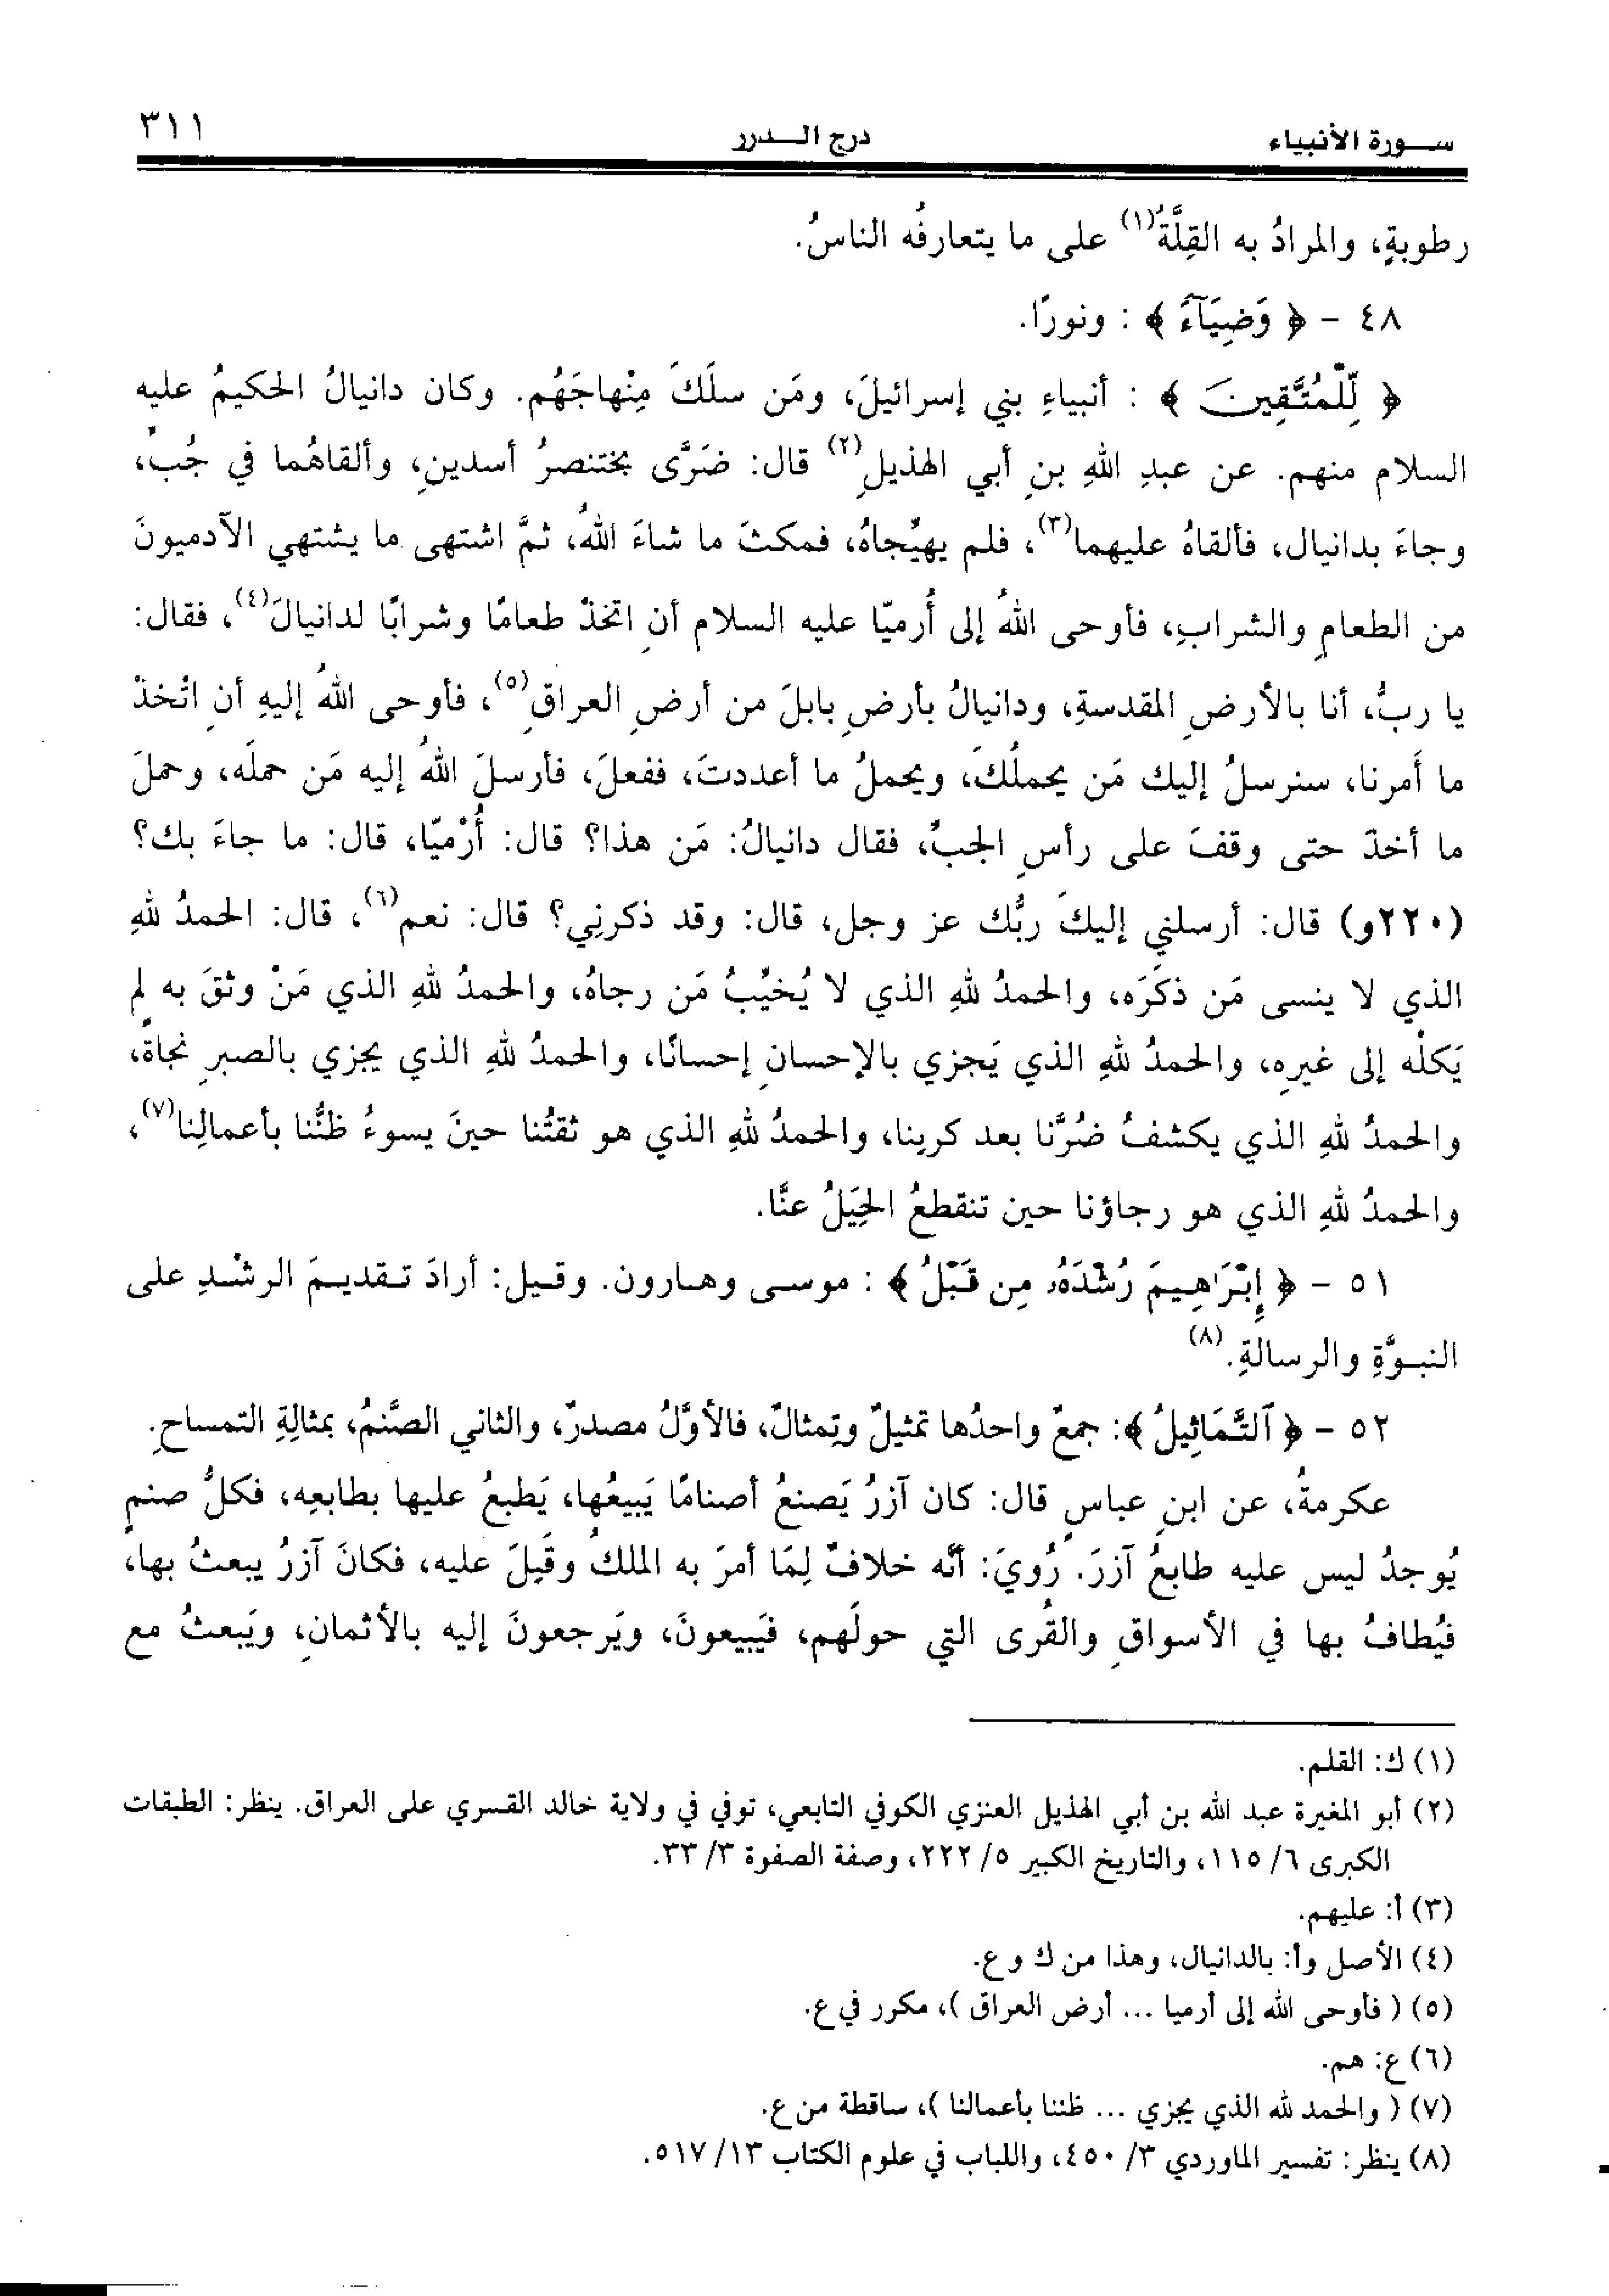 سـورة الأنبياء درج الـدرر ٣١١
رطوبةٍ، والمرادُ به القِلَّةُ(١) على ما يتعارفُه الناسُ.
٤٨ - ﴿ وَضِيَآءً ﴾ : ونورًا.
﴿ لِّلْمُتَّقِينَ ﴾ : أنبياءِ بني إسرائيلَ، ومَن سلَكَ مِنْهاجَهُم. وكان دانيالُ الحكيمُ عليه
السلام منهم. عن عبدِ اللهِ بنِ أبي الهذيلِ(٢) قال: ضَرَّى بختنصرُ أسدينِ، وألقاهُما في جُبٍّ،
وجاءَ بدانيال، فألقاهُ عليهما(٣)، فلم يهيِّجاهُ، فمكثَ ما شاءَ اللهُ، ثمَّ اشتهى ما يشتهي الآدميونَ
من الطعامِ والشرابِ، فأوحى اللهُ إلى أُرميّا عليه السلام أنِ اتخذْ طعامًا وشرابًا لدانيالَ(٤)، فقال:
يا ربُّ، أنا بالأرضِ المقدسةِ، ودانيالُ بأرضِ بابلَ من أرضِ العراقِ(٥)، فأوحى اللهُ إليهِ أنِ اتَّخذْ
ما أَمرنا، سنرسلُ إليك مَن يحملُكَ، ويحملُ ما أعددتَ، ففعلَ، فأرسلَ اللهُ إليه مَن حملَه، وحملَ
ما أخذَ حتى وقفَ على رأسِ الجبِّ، فقال دانيالُ: مَن هذا؟ قال: أُرْميّا، قال: ما جاءَ بك؟
(٢٢٠و) قال: أرسلني إليكَ ربُّك عز وجل، قال: وقد ذكرنِي؟ قال: نعم(٦)، قال: الحمدُ للهِ
الذي لا ينسى مَن ذكَرَه، والحمدُ للهِ الذي لا يُخيِّبُ مَن رجاهُ، والحمدُ للهِ الذي مَنْ وثقَ به لم
يَكلْه إلى غيرِه، والحمدُ للهِ الذي يَجزي بالإحسانِ إحسانًا، والحمدُ للهِ الذي يجزي بالصبرِ نجاةً،
والحمدُ للهِ الذي يكشفُ ضُرَّنا بعد كربِنا، والحمدُ للهِ الذي هو ثقتُنا حينَ يسوءُ ظنُّنا بأعمالِنا(٧)،
والحمدُ للهِ الذي هو رجاؤنا حين تنقطعُ الحِيَلُ عنَّا.
٥١ - ﴿ إِبْرَٰهِيمَ رُشْدَهُۥ مِن قَبْلُ ﴾ : موسى وهـارون. وقـيل: أرادَ تـقديـمَ الرشْـدِ على
النبـوَّةِ والرسالةِ.(٨)
٥٢ - ﴿ ٱلتَّمَاثِيلُ ﴾: جمعٌ واحدُها تمثيلٌ وتِمثالٌ، فالأوَّلُ مصدرٌ، والثاني الصَّنمُ، بمثالِةِ التمساحِ.
عكرمةُ، عن ابنِ عباسٍ قال: كان آزرُ يَصنعُ أصنامًا يَبيعُها، يَطبعُ عليها بطابعِه، فكلُّ صنمٍ
يُوجدُ ليس عليه طابعُ آزرَ. رُويَ: أنَّه خلافٌ لِمَا أمرَ به الملكُ وقَبِلَ عليه، فكانَ آزرُ يبعثُ بها،
فيُطافُ بها في الأسواقِ والقُرى التي حولَهم، فيَبيعونَ، ويَرجعونَ إليه بالأثمانِ، ويَبعثُ مع
(١) ك: القلم.
(٢) أبو المغيرة عبد الله بن أبي الهذيل العنزي الكوفي التابعي، توفي في ولاية خالد القسري على العراق. ينظر: الطبقات
الكبرى ٦/ ١١٥، والتاريخ الكبير ٥/ ٢٢٢، وصفة الصفوة ٣/ ٣٣.
(٣) أ: عليهم.
(٤) الأصل وأ: بالدانيال، وهذا من ك و ع.
(٥) ( فأوحى الله إلى أرميا ... أرض العراق )، مكرر في ع.
(٦) ع: هم.
(٧) ( والحمد لله الذي يجزي ... ظننا بأعمالنا )، ساقطة من ع.
(٨) ينظر: تفسير الماوردي ٣/ ٤٥٠، واللباب في علوم الكتاب ١٣/ ٥١٧.